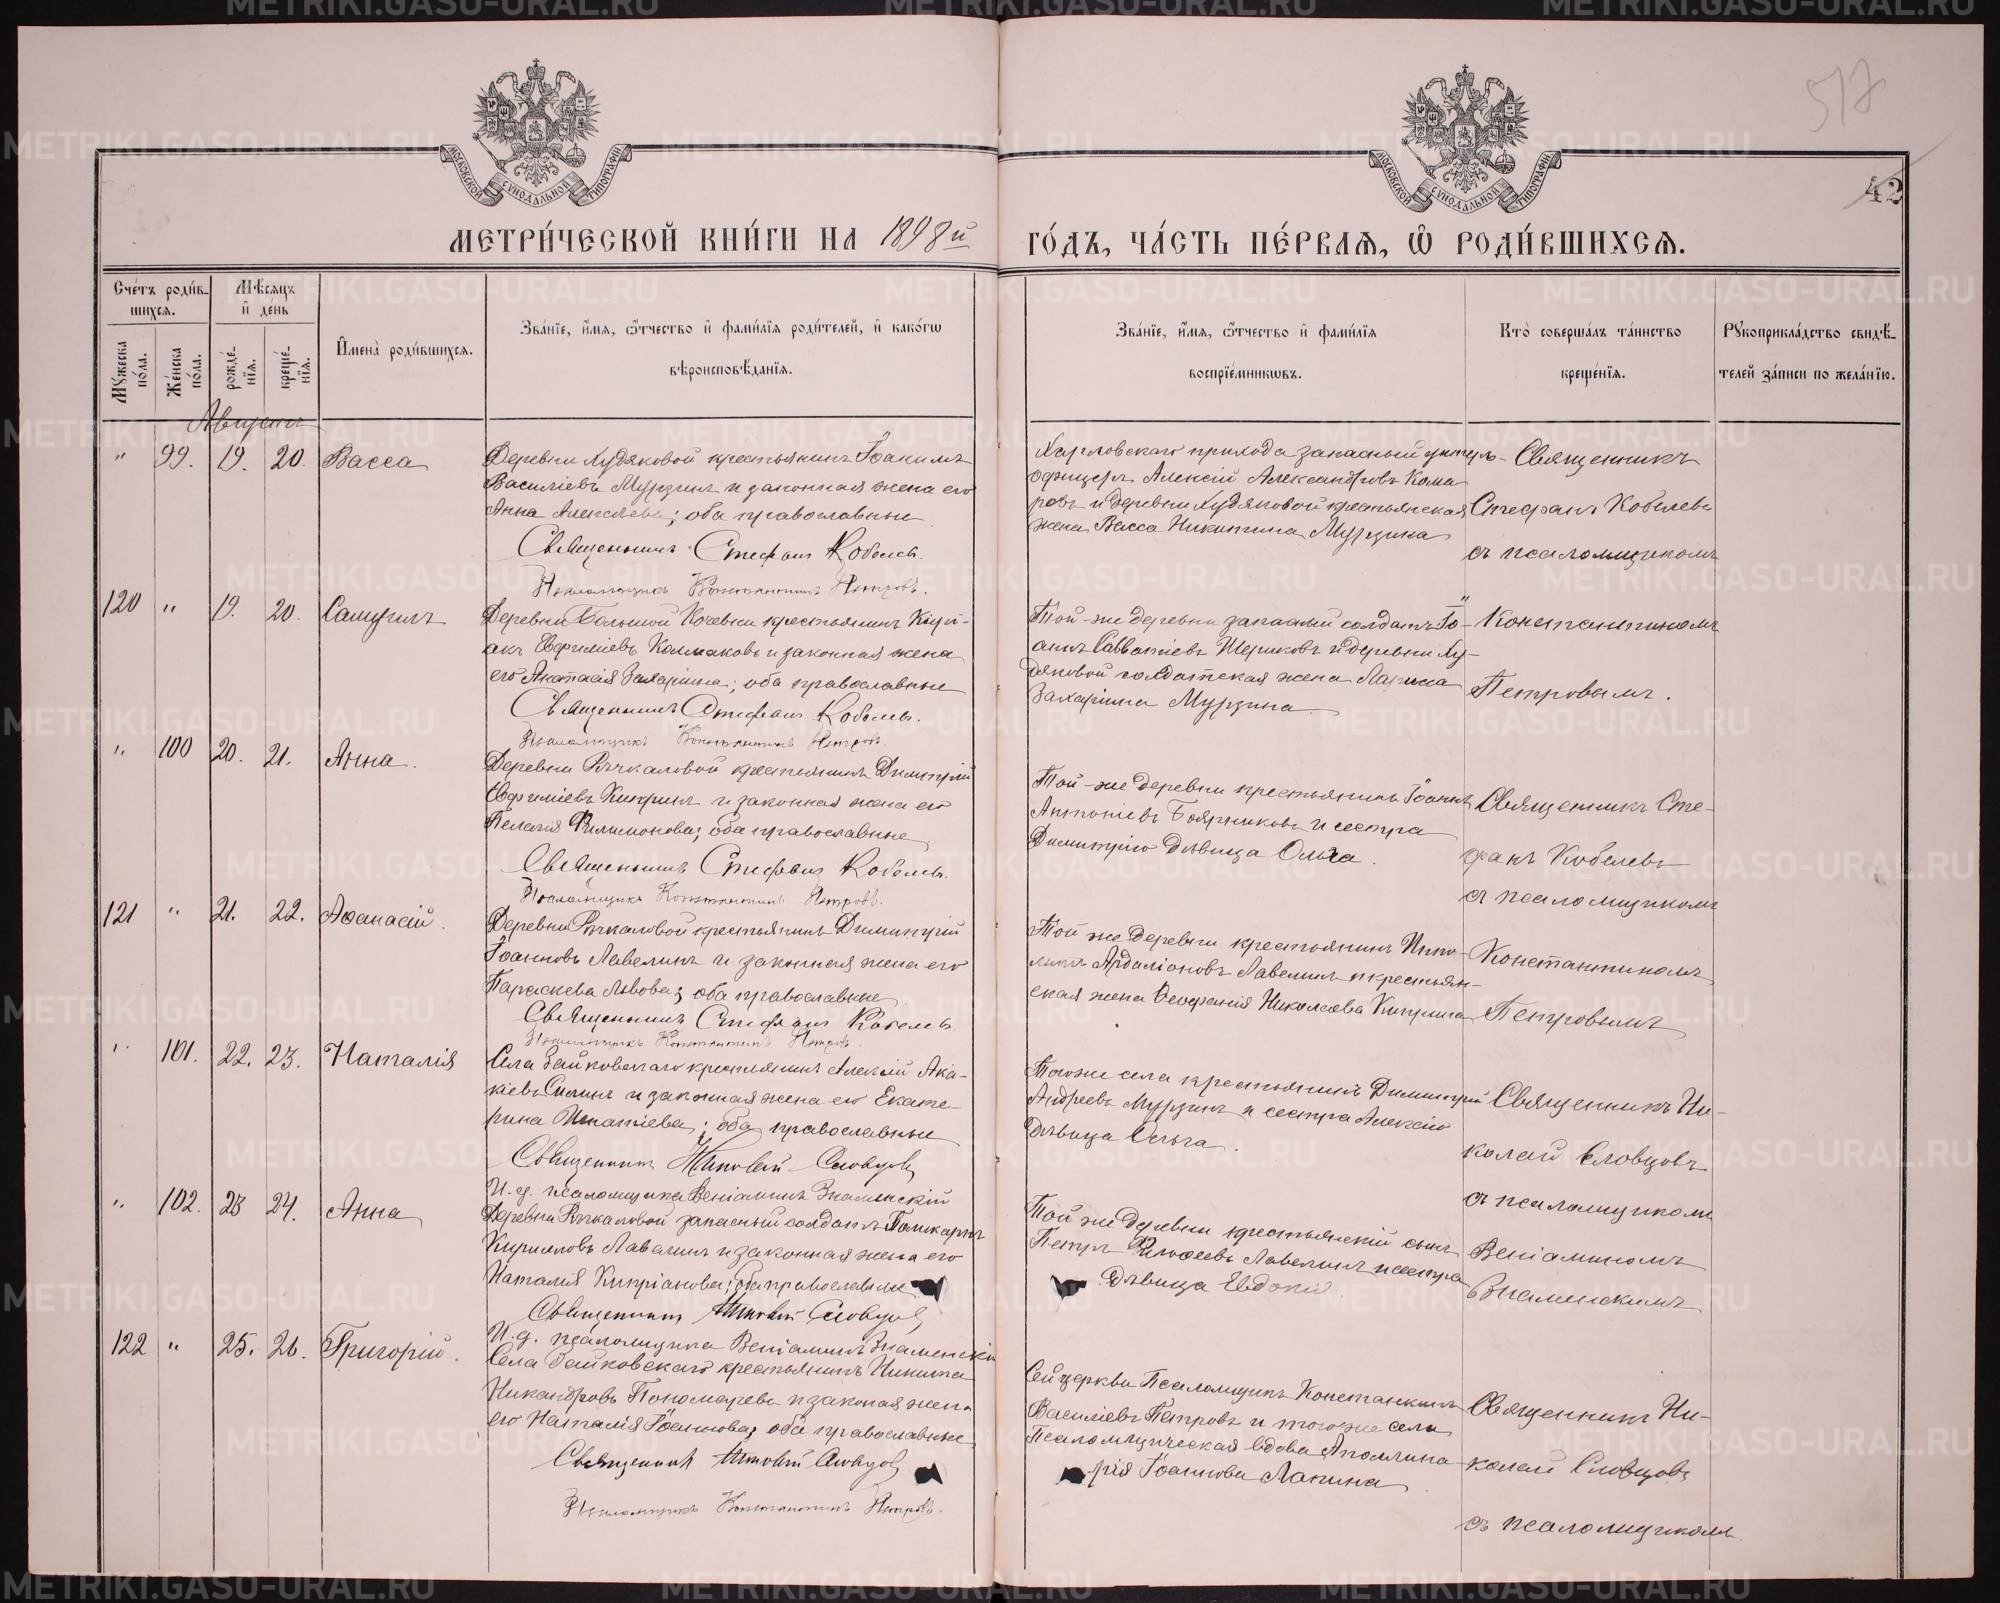 МЕТРИ́ЧЕСКОЙ КНИ́ГИ НА 1898й ГО́ДЪ, ЧА́СТЬ ПЕ́РВАЯ, Ѽ РОДИ́ВШИХСЯ.
42
МОСКОВСКОЙ СѴНОДАЛЬНОЙ ТИПОГРАФІИ
МОСКОВСКОЙ СѴНОДАЛЬНОЙ ТИПОГРАФІИ
Сче́тъ роди́в-
шихся.
Му́жеска по́ла.
Же́нска по́ла.
Мѣ́сяцъ
и де́нь
рожде́-
нія.
креще́-
нія.
Имена̀ роди́вшихся.
Зва́ніе, и́мя, ѻ́тчество и фами́лія роди́телей, и како́гѡ
вѣроисповѣ́данія.
Зва́ніе, и́мя, ѻ́тчество и фами́лія
воспріе́мникѡвъ.
Кто̀ соверша́лъ та́инство
креще́нія.
Рꙋкоприкла́дство свидѣ́-
телей за́писи по жела́нію.
Августъ
" 99. 19. 20. Васса
Деревни Худяковой крестьянинъ Іоакимъ
Василіевъ Мурзинъ и законная жена его
Анна Алексѣева; оба православные
Священникъ Стефанъ Кобелевъ.
Псаломщикъ Константинъ Петровъ.
Харловскаго прихода запасный унтеръ-
офицеръ Алексій Александровъ Кома
ровъ и деревни Худяковой крестьянская
жена Васса Никитина Мурзина
Священникъ
Стефанъ Кобелевъ
съ псаломщикомъ
120 " 19. 20. Самуилъ
Деревни Большой Кочевки крестьянинъ Кирі-
акъ Евфиміевъ Колмаковъ и законная жена
его Анастасія Захаріина; оба православные
Священникъ Стефанъ Кобелевъ.
Псаломщикъ Константинъ Петровъ.
Той-же деревни запасный солдатъ Іо-
аннъ Савватіевъ Шериковъ и деревни Ху-
дяковой солдатская жена Ларисса
Захаріина Мурзина
Константиномъ
Петровымъ.
" 100 20. 21. Анна.
Деревни Рычкаловой крестьянинъ Димитрій
Евфиміевъ Кипринъ и законная жена его
Пелагія Филимонова; оба православные
Священникъ Стефанъ Кобелевъ.
Псаломщикъ Константинъ Петровъ.
Той-же деревни крестьянинъ Іоаннъ
Антоніевъ Боярниковъ и сестра
Димитрію дѣвица Ольга.
Священникъ Сте-
фанъ Кобелевъ
съ псаломщикомъ
121 " 21. 22. Аѳанасій.
Деревни Рычкаловой крестьянинъ Димитрій
Іоанновъ Лавелинъ и законная жена его
Параскева Львова; оба православные
Священникъ Стефанъ Кобелевъ
Псаломщикъ Константинъ Петровъ.
Той же деревни крестьянинъ Иппо-
литъ Ардаліоновъ Лавелинъ и крестьян-
ская жена Ѳеофанія Николаева Киприна
Константиномъ
Петровымъ
" 101. 22. 23. Наталія
Села Байковскаго крестьянинъ Алексій Ака-
кіевъ Силинъ и законная жена его Екате-
рина Игнатіева; оба православные
Священникъ Николай Словцовъ
И. д. псаломщика Веніаминъ Знаменскій
Тогоже села крестьянинъ Димитрій
Андреевъ Мурзинъ и сестра Алексію
дѣвица Ольга.
Священникъ Ни-
колай Словцовъ
съ псаломщикомъ
" 102. 23 24. Анна
Деревни Рычкаловой запасный солдатъ
Кирилловъ Лавелинъ и законная жена его
Наталія Кипріанова; оба православные
Священникъ Николай Словцовъ
И. д. псаломщика Веніаминъ Знаменскій
Той же деревни крестьянскій сынъ
Петръ Лавелинъ и сестра
дѣвица Евдокія.
Веніаминомъ
Знаменскимъ
122 " 25. 26. Григорій.
Села Байковскаго крестьянинъ Никита
Никандровъ Пономаревъ и законая жена
его Наталія Іоаннова; оба православные
Священникъ Николай Словцовъ
Псаломщикъ Константинъ Петровъ.
Сей церкви Псаломщикъ Константинъ
Василіевъ Петровъ и тогоже села
Псаломщическая вдова Аполлина
рія Іоаннова Лапина
Священникъ Ни-
колай Словцовъ
съ псаломщикомъ
METRIKI.GASO-URAL.RU